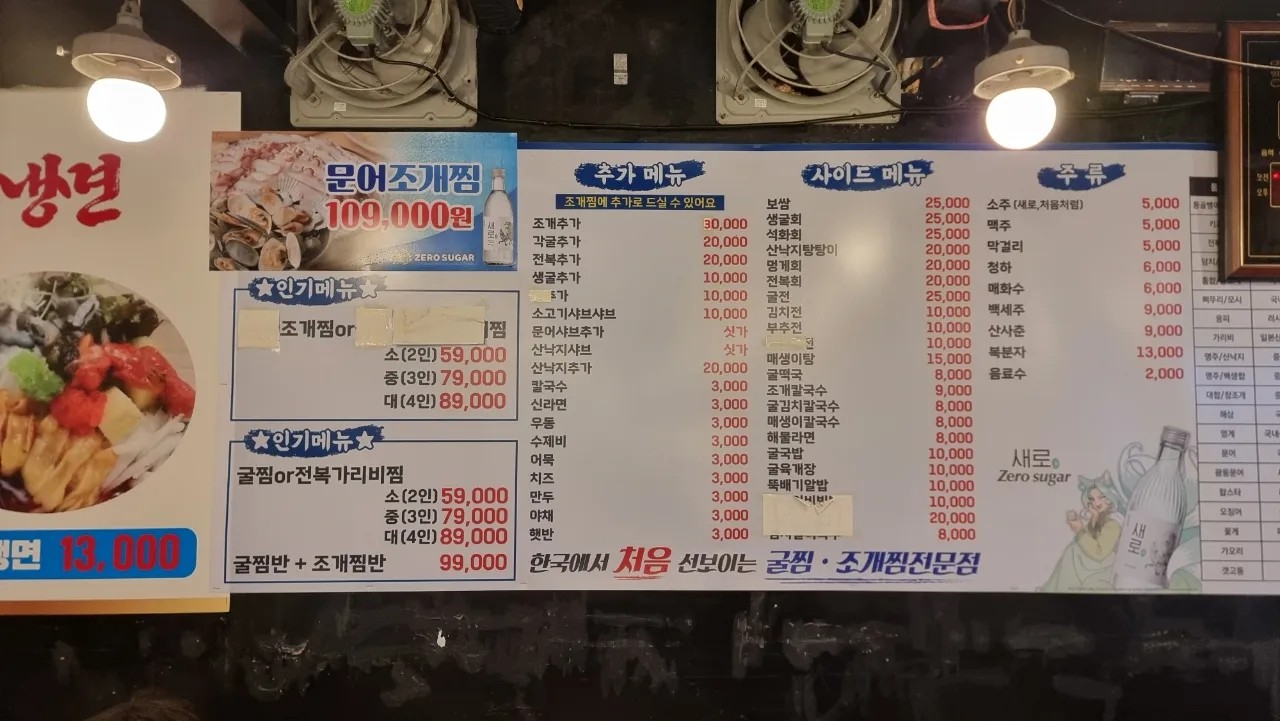 냉면
냉면 13.000
문어조개찜
109,000원
새로
ZERO SUGAR
인기메뉴
조개찜or 찜
소(2인) 59,000
중(3인) 79,000
대(4인) 89,000
인기메뉴
굴찜or전복가리비찜
소(2인) 59,000
중(3인) 79,000
대(4인) 89,000
굴찜반 + 조개찜반 99,000
추가 메뉴
조개찜에 추가로 드실 수 있어요
조개추가 30,000
각굴추가 20,000
전복추가 20,000
생굴추가 10,000
추가 10,000
소고기샤브샤브 10,000
문어샤브추가 싯가
산낙지샤브 싯가
산낙지추가 20,000
칼국수 3,000
신라면 3,000
우동 3,000
수제비 3,000
어묵 3,000
치즈 3,000
만두 3,000
야채 3,000
햇반 3,000
사이드 메뉴
보쌈 25,000
생굴회 25,000
석화회 25,000
산낙지탕탕이 20,000
멍게회 20,000
전복회 20,000
굴전 25,000
김치전 10,000
부추전 10,000
전 10,000
매생이탕 15,000
굴떡국 8,000
조개칼국수 9,000
굴김치칼국수 8,000
매생이칼국수 8,000
해물라면 8,000
굴국밥 10,000
굴육개장 10,000
뚝배기알밥 10,000
10,000
20,000
8,000
한국에서 처음 선보이는 굴찜 · 조개찜전문점
주 류
소주 (새로,처음처럼) 5,000
맥주 5,000
막걸리 5,000
청하 6,000
매화수 6,000
백세주 9,000
산사춘 9,000
복분자 13,000
음료수 2,000
새로
Zero sugar
새로
삐뚜리/모시
가리비
명주/산낙지
명주/백생합
대합/참조개
해삼
멍게
문어
랍스타
오징어
꽃게
가오리